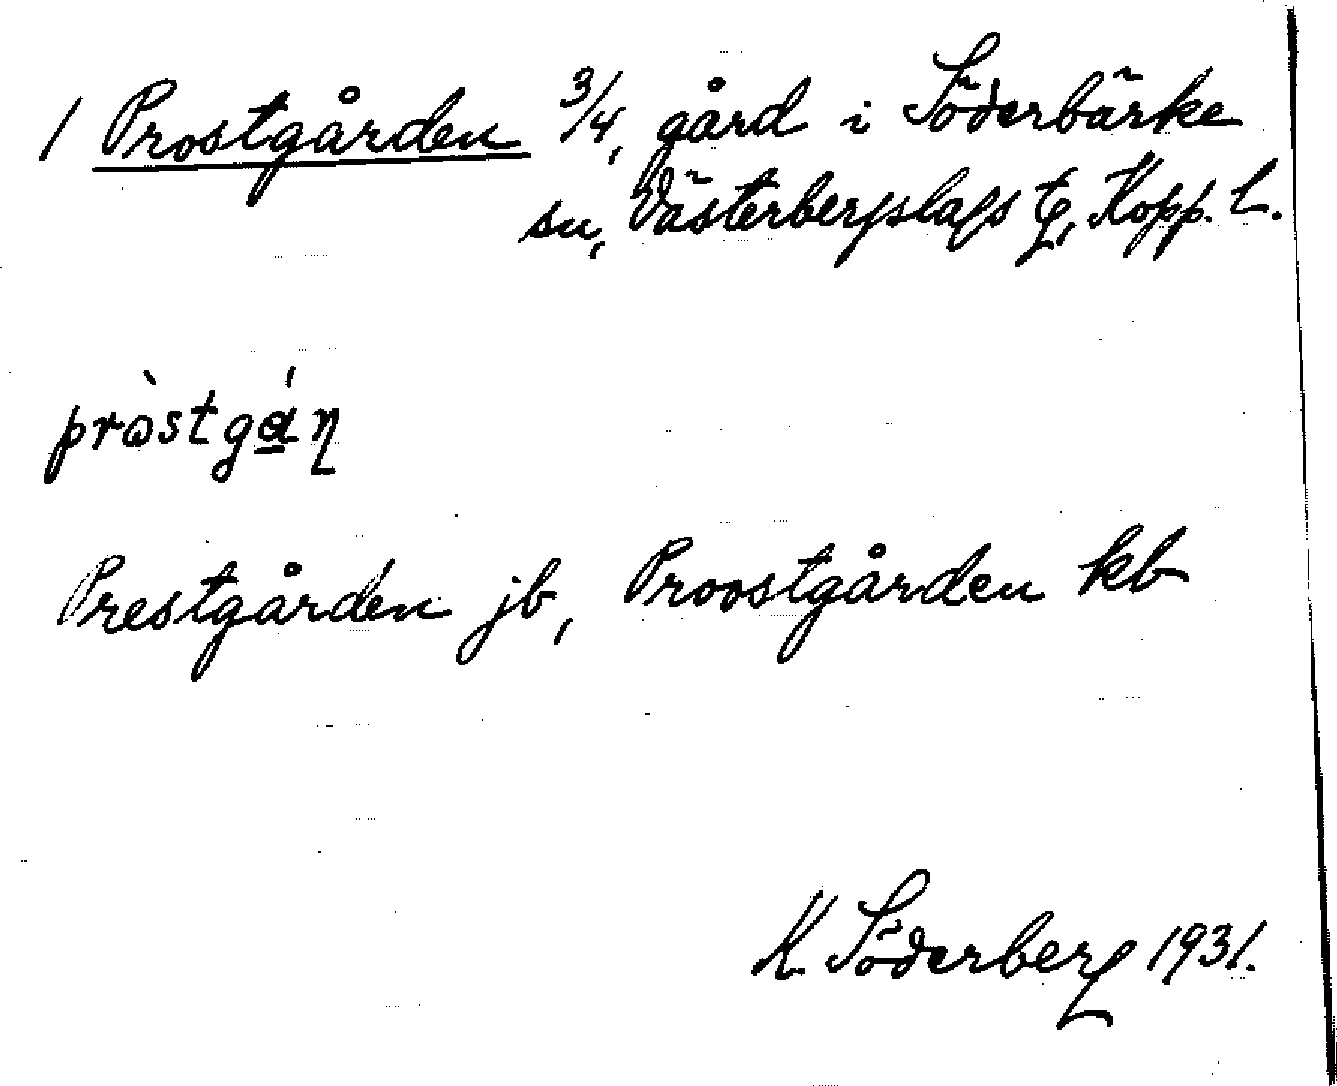 1 Prostgården 3/4, gård i Söderbärke
sn, Västerbergslags tg, Kopp. L.
pròstgán
Prestgården jb, Proostgården kb
K Söderberg 1931.